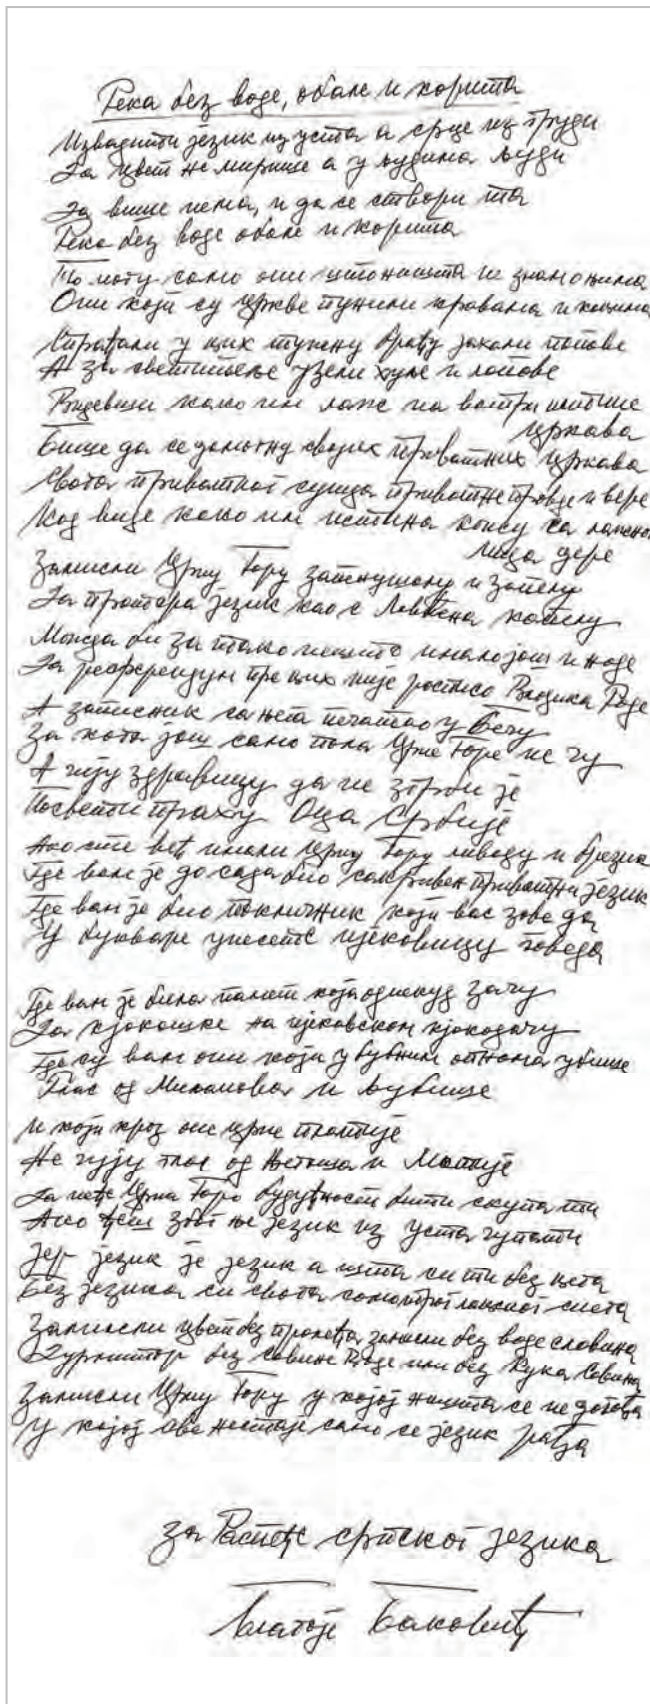 Река без воде, обале и корита
Извадити језик из уста а срце из груди
Да цвет не мирише а у људима људи
Да више нема, и да се створи та
Река без воде обале и корита
То могу само они што ништа не знамо њима
Они који су цркве пунили кравама и коцима
Спраћали у њих тужну браћу заклали попове
А за светитеље узели хуље и лопове
Видевши како им лаже на ватри
црквава
Више да се домогну својих приватних цркава
Свога приватног сунца приватне правде и вере
Кад виде како им истина кожу са
лица дере
Замисли Црну Гору занемушелу и
Да протера језик као с Ловћена
Можда би за тако нешто имало још и наде
Да референдум пре њих није расписо Владика Раде
А записник са њега печатао у Бечу
За кога још само пола Црне Горе не чу
А чију здравицу да не је
Посвети праху Оца Србије
Ако сте већ имали Црну Гору ливаду и
Где вам је до сада био сакривен приватни језик
Где вам је био покличник који вас зове да
У букваре унесете ијековицу говеда
Где вам је била памет која однекуд зачу
Да кјокошке на ијековском кјокодачу
Где су вам они који у бубним опнама убише
Глас од Миљанова и Љубише
И који кроз оне црне
Не чују глас од Његоша и Матије
Да неће Црна Горо будућности бити скупа ти
Ако ћеш због ње језик из уста чупати
Јер језик је језик а шта си ти без њега
Без језика си свога снега
Замисли цвет без пролећа замисли без воде
Дурмитор без Савине Воде или без Кука Савина
Замисли Црну Гору у којој ништа се не догађа
У којој све нестаје само се језик рађа
за Распеће српског језика
Благоје Баковић